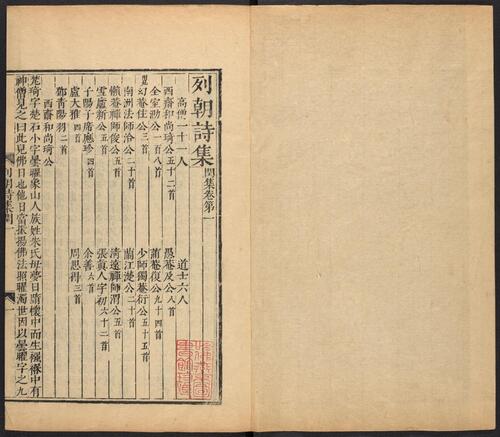 列朝詩集閏集卷第一
高僧一十一人
道士六人
西齋和尚琦公五十二首
愚菴及公八首
全室泐公一百八首
蒲菴復公九十四首
幻菴住公三首
少師獨菴衍公五十五首
南洲法師洽公二十首
蘭江㴑公二十首
懶菴禪師俊公五首
清遠禪師渭公五首
雪廬新公五首
張眞人宇初六十二首
子陽子席應珍四首
余善六首
盧大雅四首
周思得三首
鄧青陽羽二首
西齋和尚琦公
梵琦字楚石小字曇曜象山人族姓朱氏母夢日墮懷中而生襁褓中有
神僧見之曰此兒佛日也他日當振揚佛法照曜濁世因以曇曜字之九
列朝詩集閏一
一